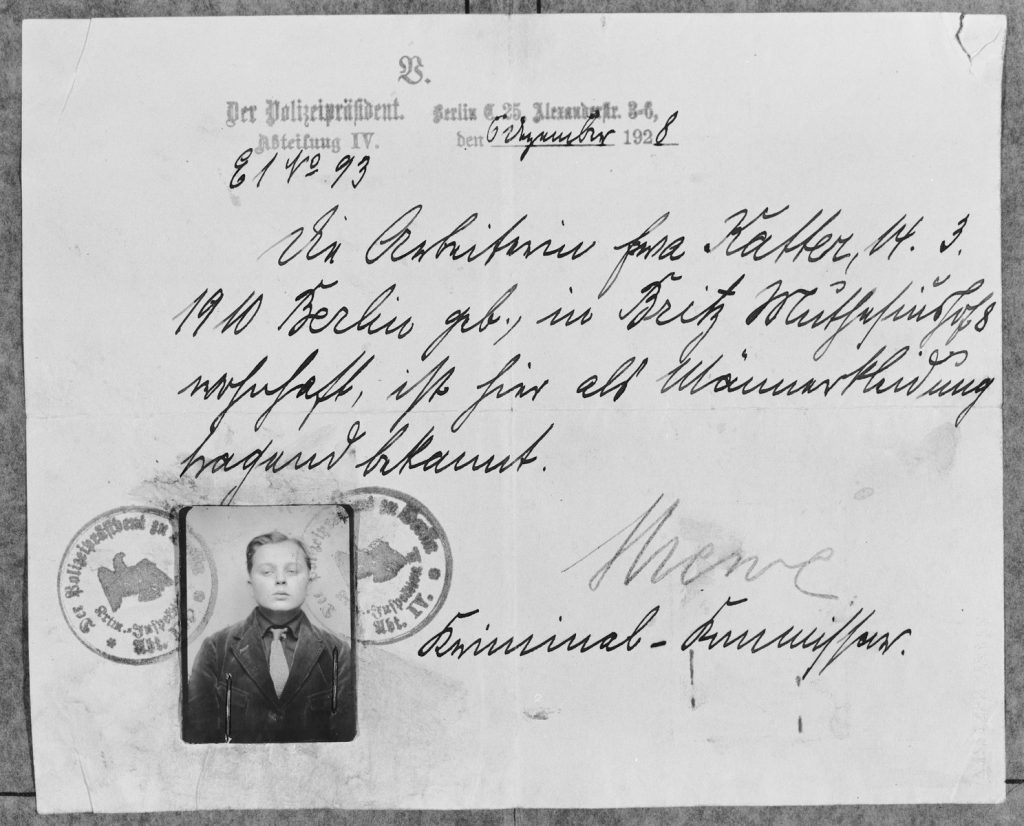 V.
Der Polizeipräsident.
Abteilung IV.
Berlin C. 25, Alexanderstr. 3-6,
den 6 Dezember 1928
E 1 No 93
Die Arbeiterin Eva Katter, 14. 3.
1910 Berlin geb., in Britz Muthesiushof 8
wohnhaft, ist hier als Männerkleidung
tragend bekannt.
Der Polizeipräsident zu Berlin
Krim.-Inspektion
Abt. IV.
Der Polizeipräsident zu Berlin
Krim.-Inspektion
Abt. IV.
Kriminal-Kommissar.